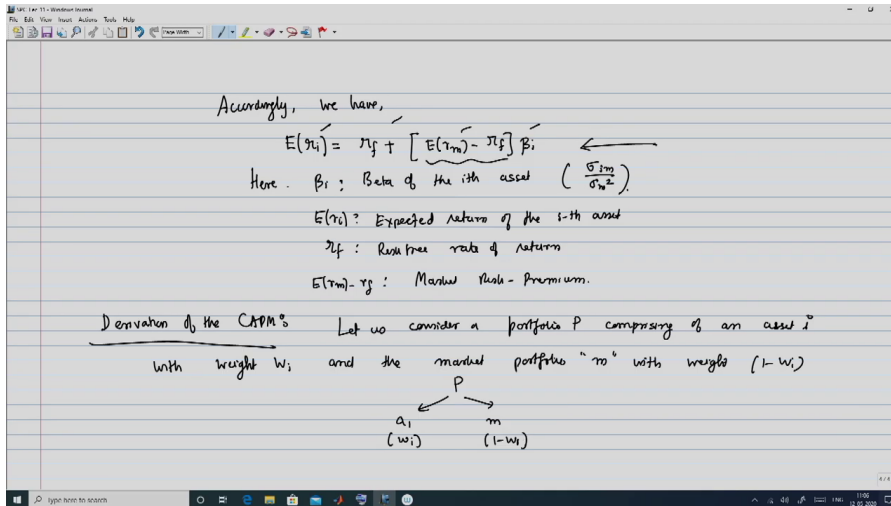 SPC Lec 11 - Windows Journal
File Edit View Insert Actions Tools Help
Page Width
Accordingly, we have,
E(ri) = rf + [E(rm) - rf] βi
Here. βi : Beta of the ith asset (σim/σm²).
E(ri) : Expected return of the i-th asset
rf : Risk free rate of return
E(rm) - rf : Market Risk-Premium.
Derivation of the CAPM : Let us consider a portfolio P comprising of an asset i
with weight wi and the market portfolio "m" with weight (1-wi)
P
ai m
(wi) (1-wi)
4/4
Type here to search
ENG
11:06
12-05-2020